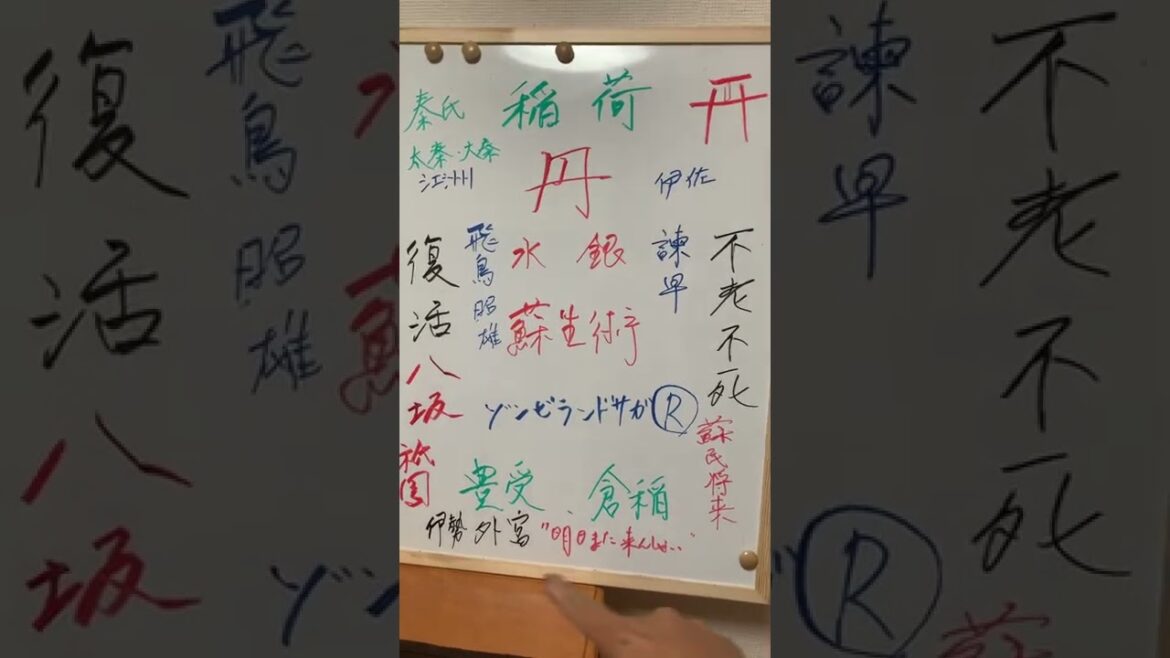 秦氏 稲荷 丹
太秦・大秦 丹
江州 伊佐
復活 飛鳥昭雄 水銀 諫早 不老不死
蘇生術
八坂 ゾンビランドサガⓇ
祇園 豊受、倉稲 蘇民将来
伊勢外宮 "明日また来んしゃい"